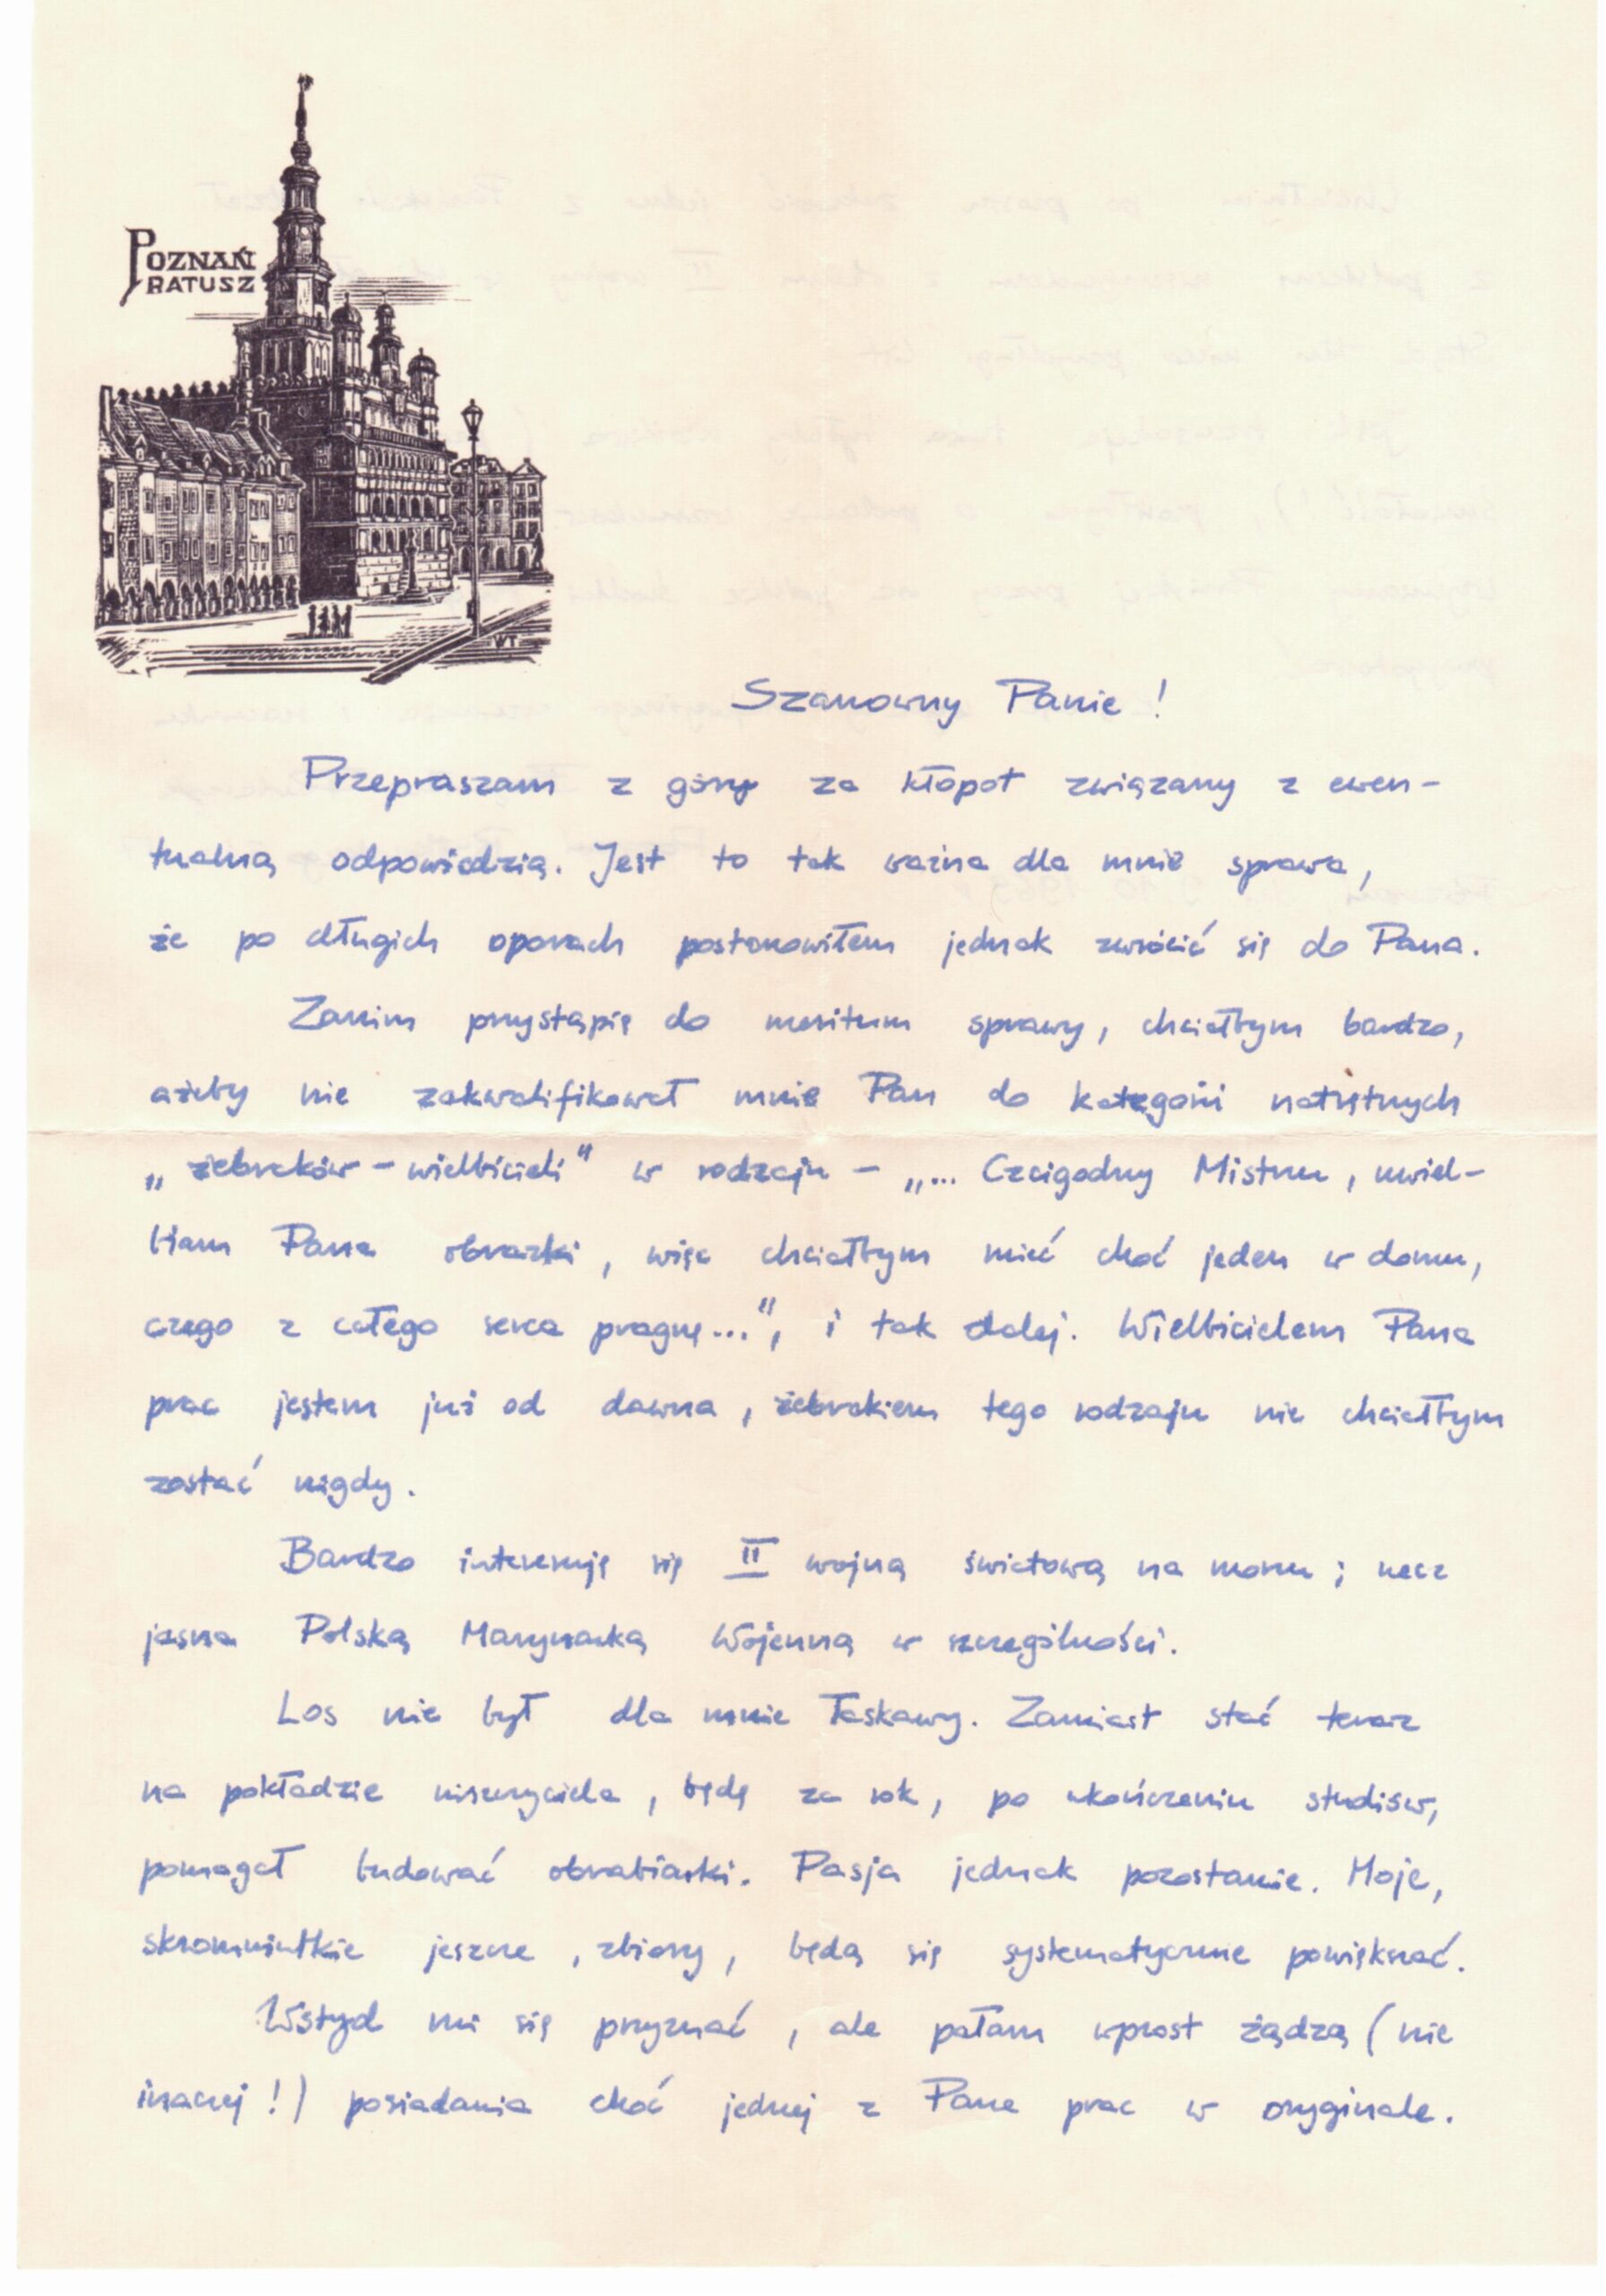 POZNAŃ
RATUSZ
WT
Szanowny Panie !
Przepraszam z góry za kłopot związany z ewen-
tualną odpowiedzią. Jest to tak ważna dla mnie sprawa,
że po długich oporach postanowiłem jednak zwrócić się do Pana.
Zanim przystąpię do meritum sprawy, chciałbym bardzo,
ażeby nie zakwalifikował mnie Pan do kategorii natrętnych
„żebraków – wielbicieli" w rodzaju – „... Czcigodny Mistrzu, uwiel-
biam Pana obrazki, więc chciałbym mieć choć jeden w domu,
czego z całego serca pragnę...", i tak dalej. Wielbicielem Pana
prac jestem już od dawna, żebrakiem tego rodzaju nie chciałbym
zostać nigdy.
Bardzo interesuję się II wojną światową na morzu; rzecz
jasna Polską Marynarką Wojenną w szczególności.
Los nie był dla mnie łaskawy. Zamiast stać teraz
na pokładzie niszczyciela, będę za rok, po ukończeniu studiów,
pomagał budować obrabiarki. Pasja jednak pozostanie. Moje,
skromniutkie jeszcze, zbiory, będą się systematycznie powiększać.
Wstyd mi się przyznać, ale pałam wprost żądzą (nie
inaczej!) posiadania choć jednej z Pana prac w oryginale.